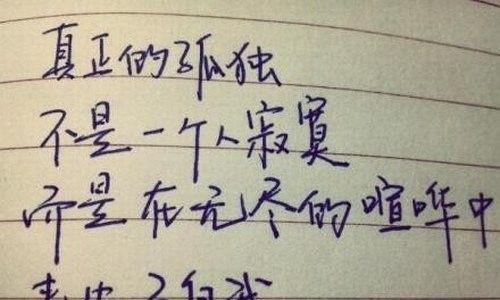 真正的孤独
不是一个人寂寞
而是在无尽的喧哗中